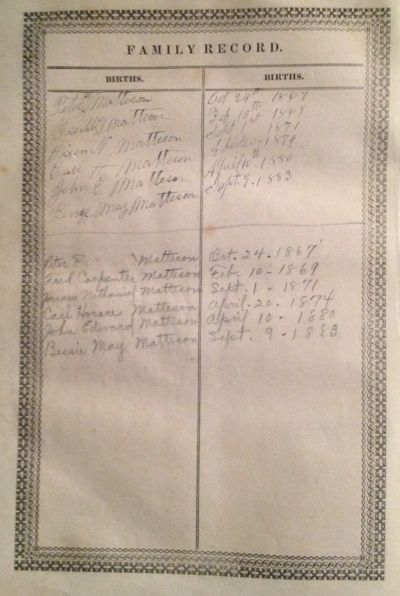 FAMILY RECORD.
BIRTHS. BIRTHS.
Peter Matteson Oct 24th 1867
Matteson Feb 10th 1869
Matteson Sept 1st 1871
Matteson 20 1874
John E Matteson April 10th 1880
May Matteson Sept. 9. 1883
Peter F. Matteson Oct. 24 - 1867
Fred Carpenter Matteson Feb. 10 - 1869
Horace Nathaniel Matteson Sept. 1 - 1871
Carl Horace Matteson April - 20. 1874
John Edward Matteson April 10 - 1880
Bessie May Matteson Sept. 9 - 1883